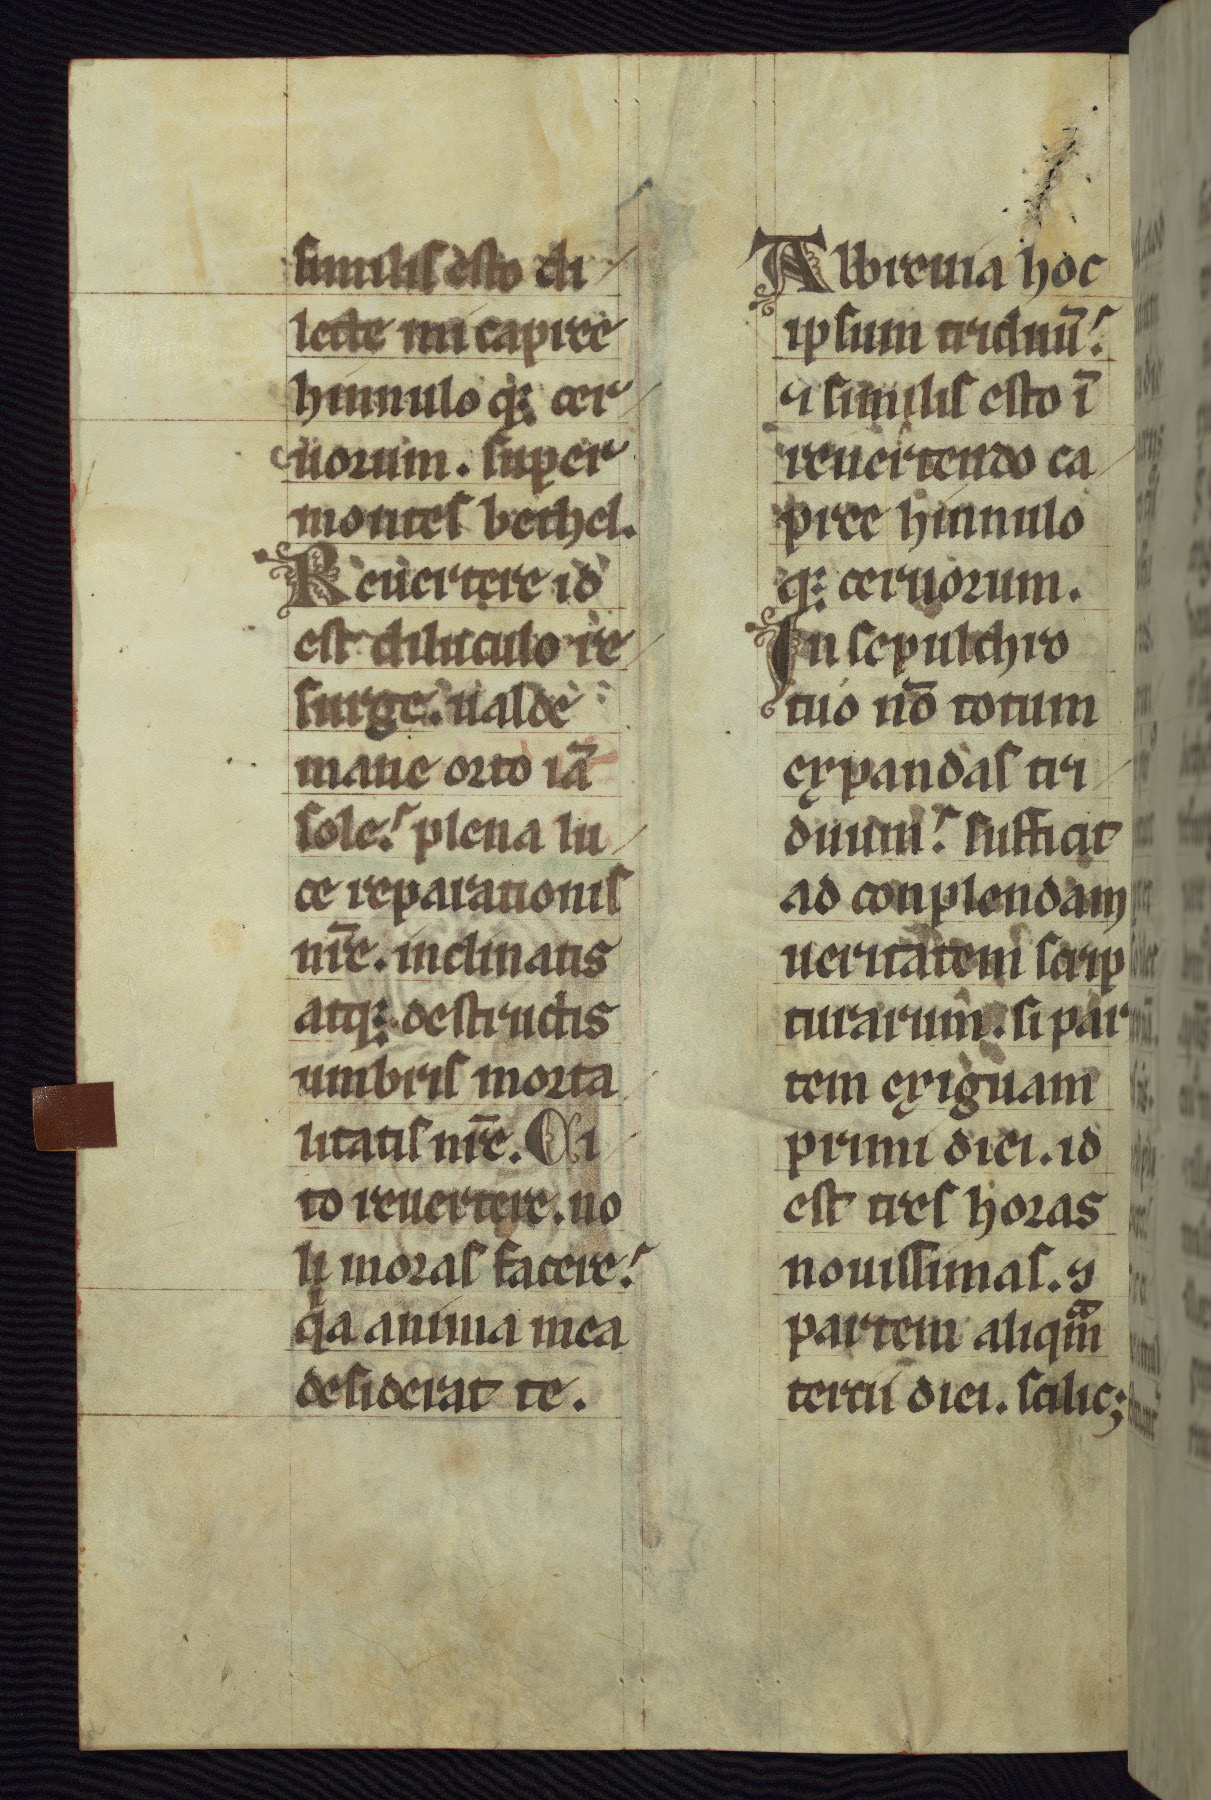 similis esto di
lecte mi capree
hinnulo q; cer
uorum. super
montes bethel.
Reuertere id
est diluculo re
surge. ualde
mane orto iā
sole. plena lu
ce reparationis
nr̄e. inclinatis
atq; destructis
umbris morta
litatis nr̄e. Ci
to reuertere. no
li moras facere.
qͥa anima mea
desiderat te.
Abbreuia hoc
ipsum triduū.
⁊ similis esto ī
reuertendo ca
pree hinnulo
q; ceruorum.
In sepulchro
tuo nō totum
expandas tri
duum. sufficit
ad conplendam
ueritatem scrip
turarum. si par
tem exiguam
primi diei. id
est tres horas
nouissimas. ⁊
partem aliqᷓm
tercii diei. scilic;